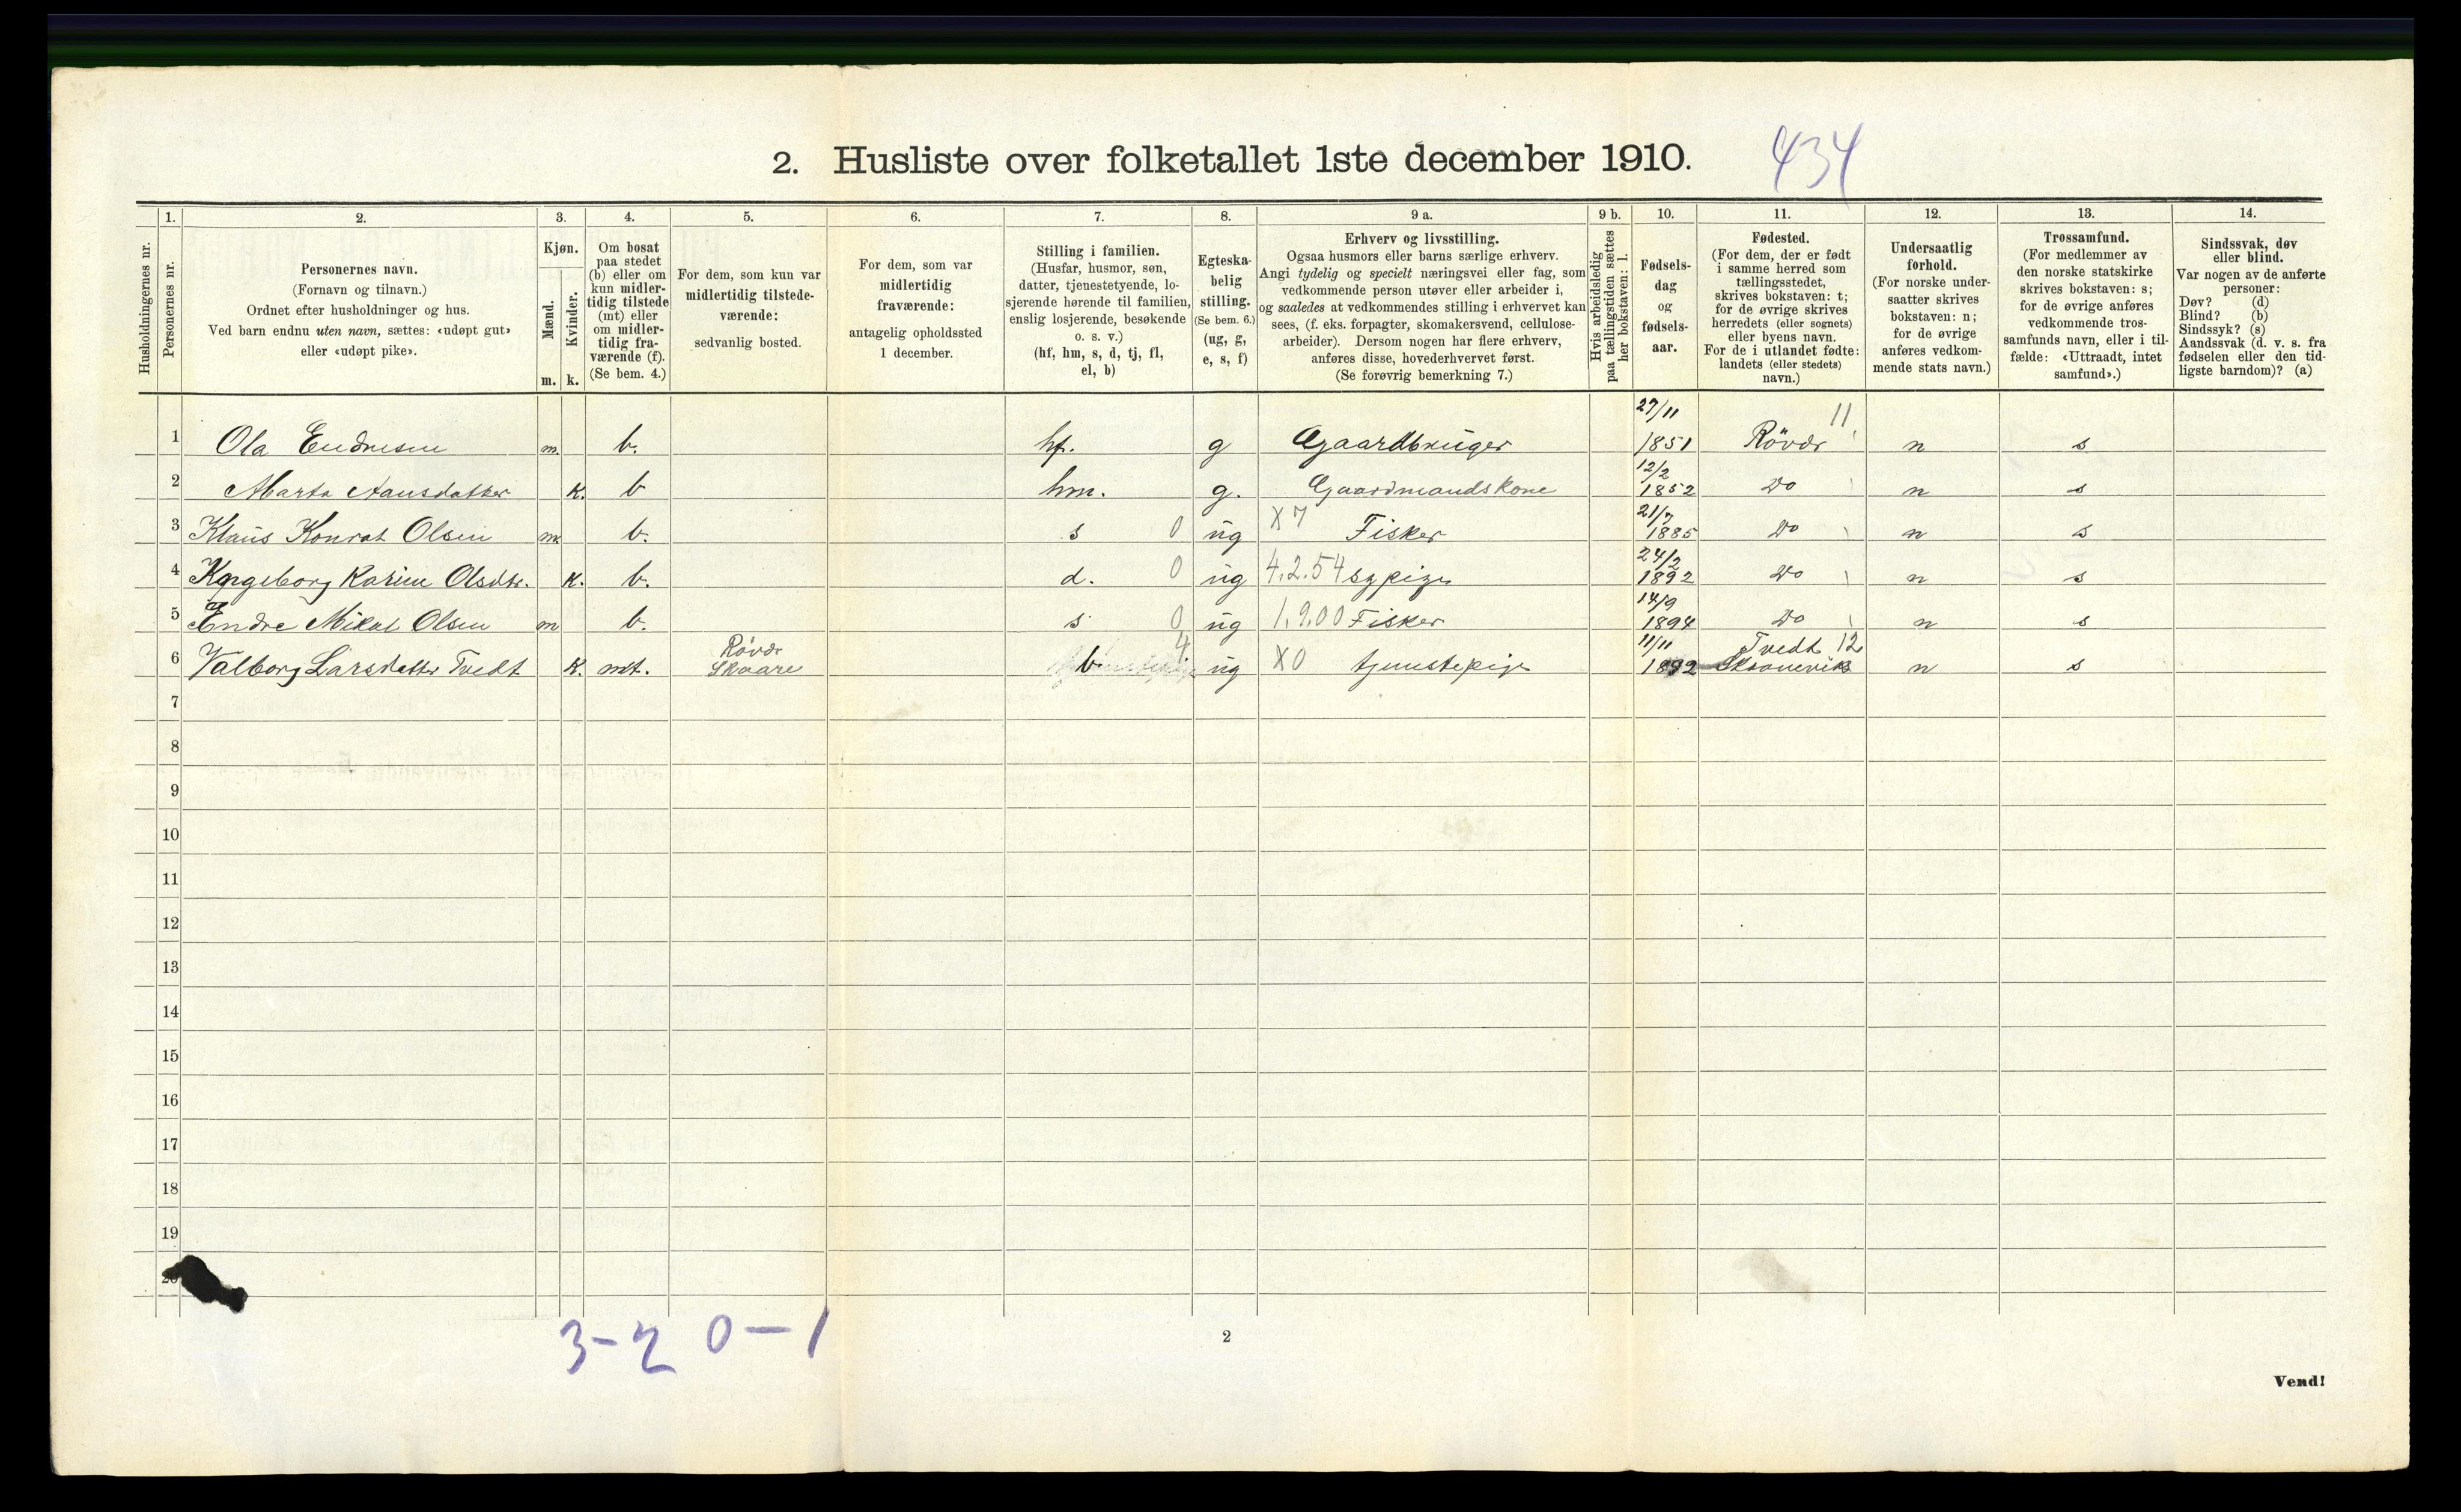 2. Husliste over folketallet 1ste december 1910. 434
Husholdningernes nr.
1.
Personernes nr.
2.
Personernes navn.
(Fornavn og tilnavn.)
Ordnet efter husholdninger og hus.
Ved barn endnu uten navn, sættes: «udøpt gut»
eller «udøpt pike».
3.
Kjøn.
Mænd.
Kvinder.
m. k.
4.
Om bosat
paa stedet
(b) eller om
kun midler-
tidig tilstede
(mt) eller
om midler-
tidig fra-
værende (f).
(Se bem. 4.)
5.
For dem, som kun var
midlertidig tilstede-
værende:
sedvanlig bosted.
6.
For dem, som var
midlertidig
fraværende:
antagelig opholdssted
1 december.
7.
Stilling i familien.
(Husfar, husmor, søn,
datter, tjenestetyende, lo-
sjerende hørende til familien,
enslig losjerende, besøkende
o. s. v.)
(hf, hm, s, d, tj, fl,
el, b)
8.
Egteska-
belig
stilling.
(Se bem. 6.)
(ug, g,
e, s, f)
9 a.
Erhverv og livsstilling.
Ogsaa husmors eller barns særlige erhverv.
Angi tydelig og specielt næringsvei eller fag, som
vedkommende person utøver eller arbeider i,
og saaledes at vedkommendes stilling i erhvervet kan
sees, (f. eks. forpagter, skomakersvend, cellulose-
arbeider). Dersom nogen har flere erhverv,
anføres disse, hovederhvervet først.
(Se forøvrig bemerkning 7.)
9 b.
Hvis arbeidsledig
paa tællingstiden sættes
her bokstaven: l.
10.
Fødsels-
dag
og
fødsels-
aar.
11.
Fødested.
(For dem, der er født
i samme herred som
tællingsstedet,
skrives bokstaven: t;
for de øvrige skrives
herredets (eller sognets)
eller byens navn.
For de i utlandet fødte:
landets (eller stedets)
navn.)
12.
Undersaatlig
forhold.
(For norske under-
saatter skrives
bokstaven: n;
for de øvrige
anføres vedkom-
mende stats navn.)
13.
Trossamfund.
(For medlemmer av
den norske statskirke
skrives bokstaven: s;
for de øvrige anføres
vedkommende tros-
samfunds navn, eller i til-
fælde: «Uttraadt, intet
samfund».)
14.
Sindssvak, døv
eller blind.
Var nogen av de anførte
personer:
Døv? (d)
Blind? (b)
Sindssyk? (s)
Aandssvak (d. v. s. fra
fødselen eller den tid-
ligste barndom)? (a)
27/11 11
1 Ola Endresen m. b. hf. g Gaardbruger 1851 Rövær n s
12/2
2 Marta Aansdatter k. b hm. g. Gaardmandskone 1852 Do n s
21/7
3 Klaus Konrat Olsen m b. s 0 ug X7 Fisker 1885 Do n s
24/2
4 Ingeborg Karine Olsdtr. k. b. d. 0 ug 4.2.54 sypige 1892 Do n s
14/9
5 Endre Mikal Olsen m b. s 0 ug 1.9.00 Fisker 1894 Do n s
Rövær 4 11/11 Tvedt 12
6 Valborg Larsdatter Tvedt k. mt. Skaare b ug X0 tjenstepige 1892 Skonevik n s
7
8
9
10
11
12
13
14
15
16
17
18
19
3-2 0-1
2
Vend!